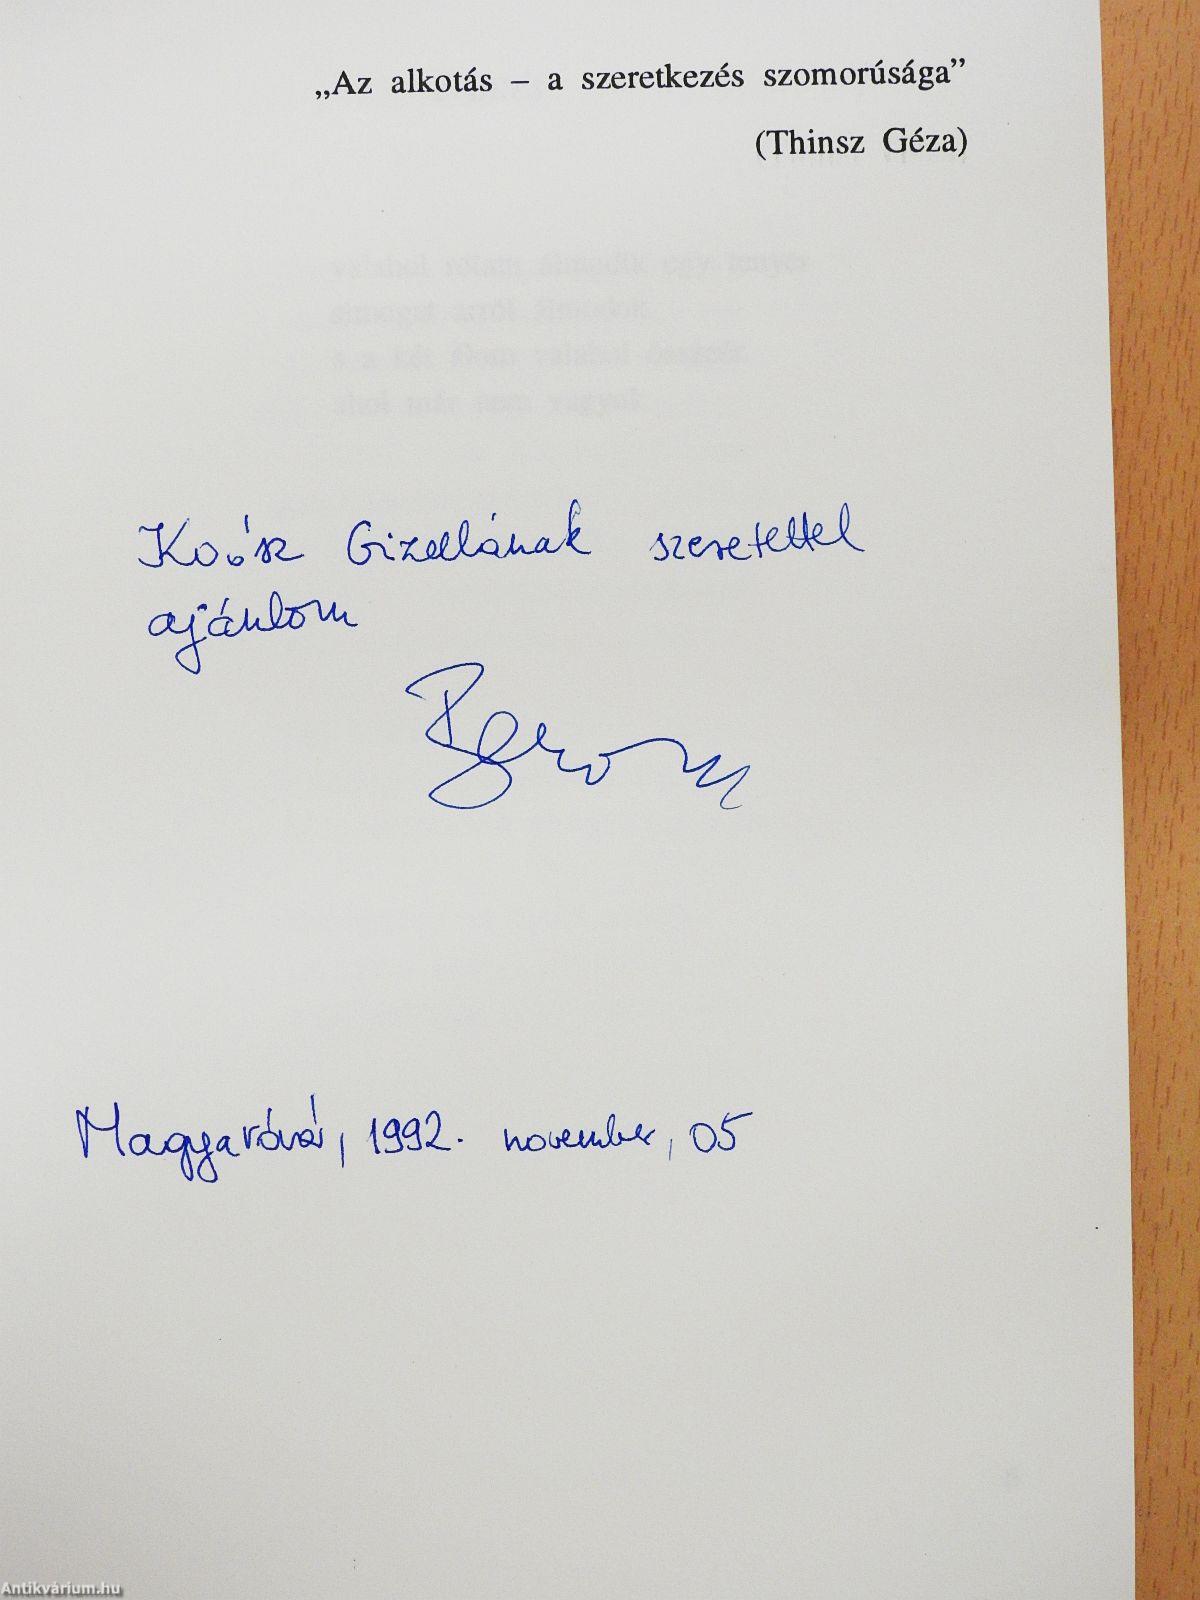 „Az alkotás – a szeretkezés szomorúsága”
(Thinsz Géza)
ahol már nem vagyok
Koósz Gizellának szeretettel
ajánlom
Magyaróvár, 1992. november, 05
Antikvárium.hu